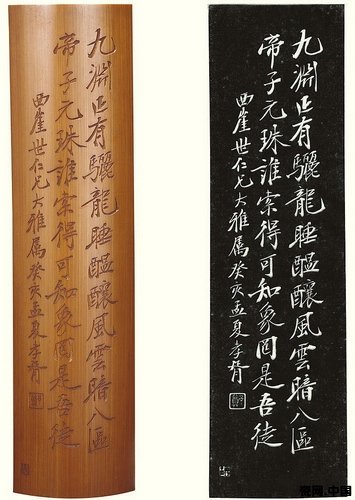 九淵正有驪龍睡醖釀風雲暗八區
帝子元珠誰索得可知象罔是吾徒
西崖世仁兄大雅属癸亥孟夏孝胥
九淵正有驪龍睡醖釀風雲暗八區
帝子元珠誰索得可知象罔是吾徒
西崖世仁兄大雅属癸亥孟夏孝胥